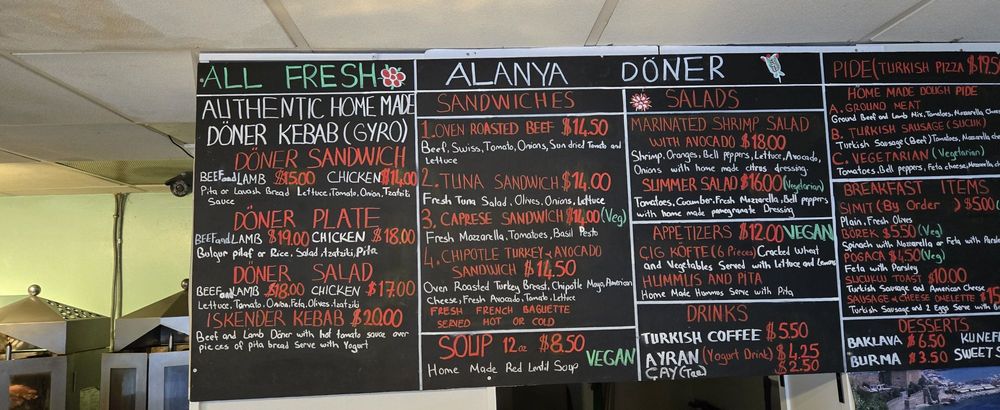 ALL FRESH
AUTHENTIC HOME MADE
DÖNER KEBAB (GYRO)
DÖNER SANDWICH
BEEF and LAMB $15.00 CHICKEN $14.00
Pita or Lavash Bread Lettuce, Tomato, Onion, Tzatziki
Sauce
DÖNER PLATE
BEEF and LAMB $19.00 CHICKEN $18.00
Bulgur pilaf or Rice, Salad, tzatziki, Pita
DÖNER SALAD
BEEF and LAMB $18.00 CHICKEN $17.00
Lettuce, Tomato, Onion, Feta, Olives, tzatziki
ISKENDER KEBAB $20.00
Beef and Lamb Döner with hot tomato sauce over
pieces of pita bread Serve with Yogurt
ALANYA DÖNER
SANDWICHES
1. OVEN ROASTED BEEF $14.50
Beef, Swiss, Tomato, Onions, Sun dried Tomato and
Lettuce
2. TUNA SANDWICH $14.00
Fresh Tuna Salad, Olives, Onions, Lettuce
3. CAPRESE SANDWICH $14.00 (Veg)
Fresh Mozzarella, Tomatoes, Basil Pesto
4. CHIPOTLE TURKEY & AVOCADO
SANDWICH $14.50
Oven Roasted Turkey Breast, Chipotle Mayo, American
Cheese, Fresh Avocado, Tomato, Lettuce
FRESH FRENCH BAGUETTE
SERVED HOT OR COLD
SOUP 12 oz $8.50
VEGAN
Home Made Red Lentil Soup
SALADS
MARINATED SHRIMP SALAD
WITH AVOCADO $18.00
Shrimp, Oranges, Bell peppers, Lettuce, Avocado,
Onions with home made citrus dressing.
SUMMER SALAD $16.00 (Vegetarian)
Tomatoes, Cucumber, Fresh Mozzarella, Bell peppers
with home made pomegranate Dressing
APPETIZERS $12.00 VEGAN
ÇIG KÖFTE (6 Pieces) Cracked Wheat
and Vegetables Served with Lettuce and Lemons
HUMMUS AND PITA
Home Made Hummus Serve with Pita
DRINKS
TURKISH COFFEE $5.50
AYRAN (Yogurt Drink) $4.25
ÇAY (Tea) $2.50
PIDE (TURKISH PIZZA $19.50
HOME MADE DOUGH PIDE
A. GROUND MEAT
Ground Beef and Lamb Mix, Tomatoes, Mozzarella
B. TURKISH SAUSAGE (SUCUK)
Turkish Sausage (Beef) Tomatoes, Mozzarella
C. VEGETARIAN (Vegetarian)
Tomatoes, Bell peppers, Feta cheese,
BREAKFAST ITEMS
SIMIT (By Order) $5.00
Plain, Fresh Olives
BÖREK $5.50 (Veg)
Spinach with Mozzarella or Feta with Parsley
POGACA $4.50 (Veg)
Feta with Parsley
SUCUKLU TOAST $10.00
Turkish Sausage and American Cheese
SAUSAGE & CHEESE OMELETTE $15
Turkish Sausage and 2 Eggs Serve with
DESSERTS
BAKLAVA $6.50 KUNEF
BURMA $3.50 SWEET S